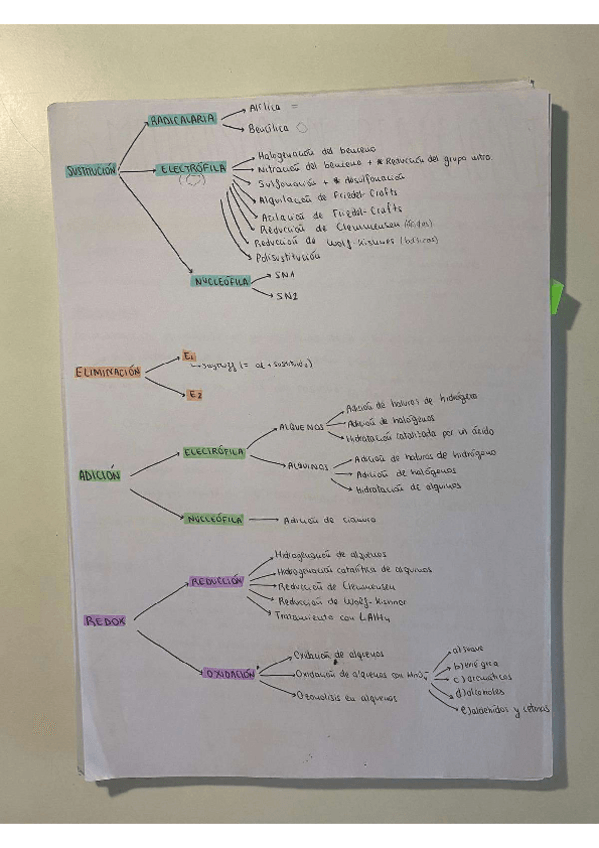 SUSTITUCIÓN
RADICALARIA
Alílica =
Bencílica
ELECTRÓFILA
Halogenación del benceno
Nitración del benceno + * Reducción del grupo nitro
Sulfonación + * desulfonación
Alquilación de Friedel-Crafts
Acilación de Friedel-Crafts
Reducción de Clemmensen (ácidas)
Reducción de Wolf-Kishner (básicas)
Polisustitución
NUCLEÓFILA
SN1
SN2
ELIMINACIÓN
E1
E2
ADICIÓN
ELECTRÓFILA
ALQUENOS
Adición de haluros de hidrógeno
Adición de halógenos
Hidratación catalizada por un ácido
ALQUINOS
Adición de haluros de hidrógeno
Adición de halógenos
Hidratación de alquinos
NUCLEÓFILA
Adición de cianuro
REDOX
REDUCCIÓN
Hidrogenación de alquenos
Hidrogenación catalítica de alquinos
Reducción de Clemmensen
Reducción de Wolf-Kishner
Tratamiento con LAlH4
OXIDACIÓN
Oxidación de alquenos
Oxidación de alquenos con MnO4-
a) suave
b) enérgica
c) aromáticos
d) alcoholes
e) aldehídos y cetonas
Ozonólisis en alquenos